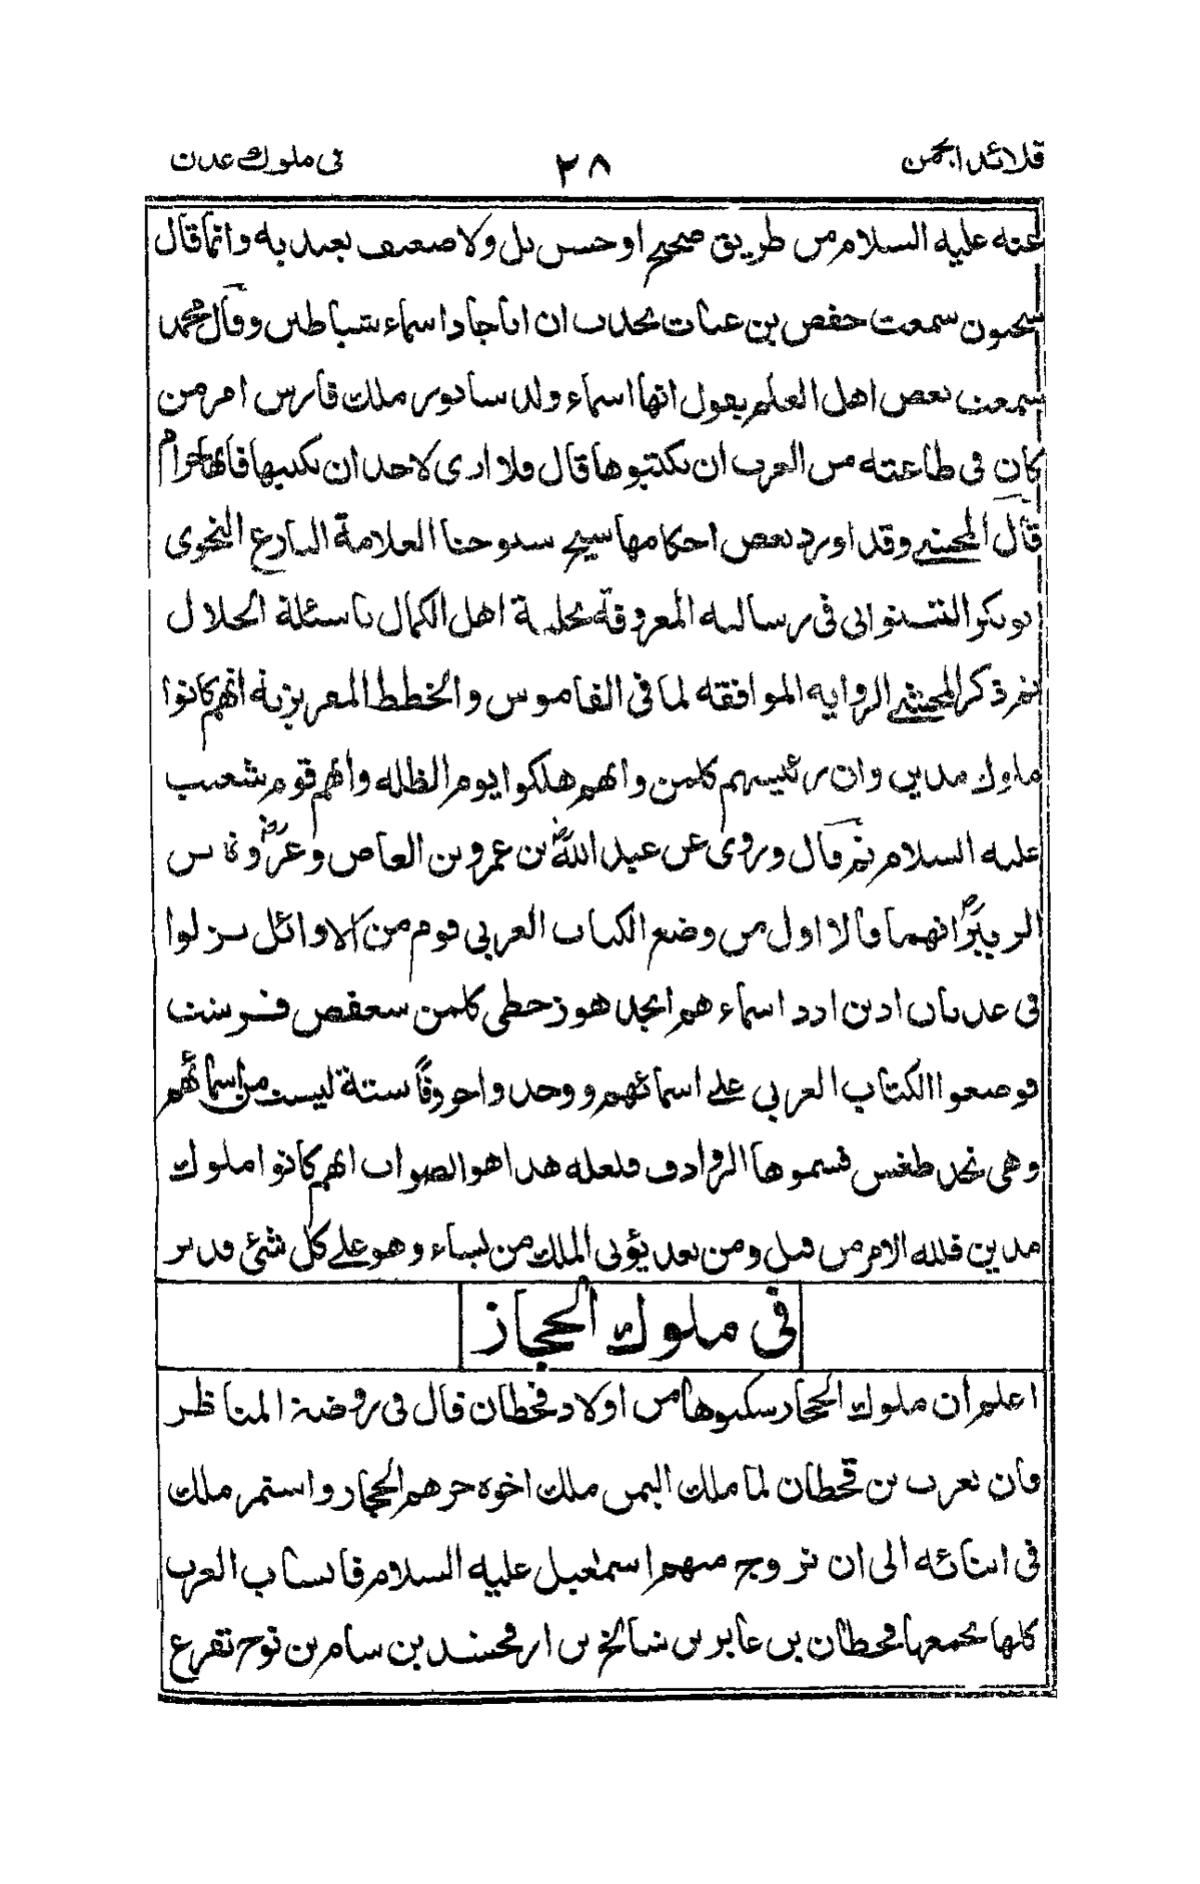 قلائد الجمن ٢٨ فى ملوك عدن
عنه عليه السلام من طريق صحيح او حسن بل ولا ضعيف يعتد به وانما قال
سحنون سمعت حفص بن غياث يحدث ان اباجاد اسماء شياطين وقال محمد
سمعت بعض اهل العلم يقول انها اسماء ولد سابور ملك فارس امر من
كان فى طاعته من العرب ان يكتبوها قال فلا ارى لاحد ان يكتبها فانها حرام
قال المحشے وقد اورد بعض احكامها شيخ شيوخنا العلامة البارع النحوى
ابوبكر الشنوانى فى رسالته المعروفة بحلية اهل الكمال باسئلة الجلال
ثم ذكر المحشے الرواية الموافقة لما فى القاموس والخطط المقريزية انهم كانوا
ملوك مدين وان رئيسهم كلمن وانهم هلكوا يوم الظلة وانهم قوم شعيب
عليه السلام ثم قال وروى عن عبد الله بن عمرو بن العاص وعروة بن
الزبير انهما قالا اول من وضع الكتاب العربى قوم من الاوائل نزلوا
فى عدنان ادبن ادد اسماء هم ابجد هوز حطى كلمن سعفص قرشت
فوضعوا الكتاب العربى على اسمائهم ووجدوا حروفا ستة ليست من اسمائهم
وهى ثخذ ظغش فسموها الروادف فلعله هذا هو الصواب انهم كانوا ملوك
مدين فلله الامر من قبل ومن بعد يؤتى الملك من يشاء وهو على كل شئ قدير
فى ملوك الحجاز
اعلم ان ملوك الحجاز سكنوها من اولاد قحطان قال فى روضة المناظر
وان يعرب بن قحطان لما ملك اليمن ملك اخوه جرهم الحجاز واستمر ملك
فى ابنائه الى ان تزوج منهم اسمعيل عليه السلام فانساب العرب
كلها يجمعها قحطان بن عابر بن شالخ بن ارفخشد بن سام بن نوح تفرع